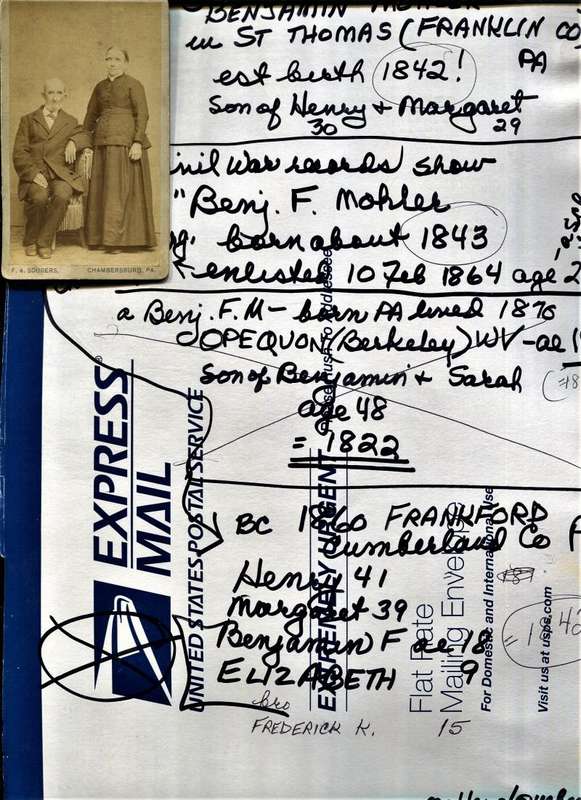 BENJAMIN MOHLER
in ST THOMAS (FRANKLIN CO
PA
est birth 1842!
Son of Henry + Margaret
30 29
F. A. SODGERS, CHAMBERSBURG, PA.
ivil War records show
"Benj. F. Mohler
born about 1843
enlisted 10 Feb 1864 age 2
a Benj. F. M- born PA lived 1870
OPEQUON (Berkeley) WV - ae
Son of Benjamin + Sarah
age 48
= 1822
BC 1860 FRANKFORD
Cumberland Co
Henry 41
Margaret 39
Benjamin F ae 18
ELIZABETH 9
bro
FREDERICK K. 15
EXPRESS
MAIL
UNITED STATES POSTAL SERVICE
EXTREMELY URGENT
Please Rush To Addressee
Flat Rate
Mailing Envelope
For Domestic and International Use
Visit us at usps.com